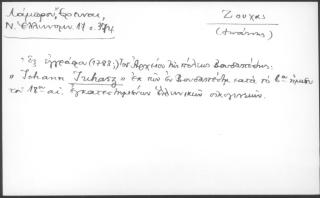 Λάμπρου, Ἔρευναι,
Ν. Ἑλληνομν. 17 σ. 374
Ζιουχας
(Ἰωάννης)
Ἐξ ἐγγράφου (1788) τοῦ Ἀρχείου τῆς πόλεως Βουδαπέστης:
"Johann Juhasz" ἐκ τῶν ἐν Βουδαπέστῃ κατὰ τὸ β' ἥμισυ
τοῦ 18ου αἰ. ἐγκατεστημένων ἑλληνικῶν οἰκογενειῶν.